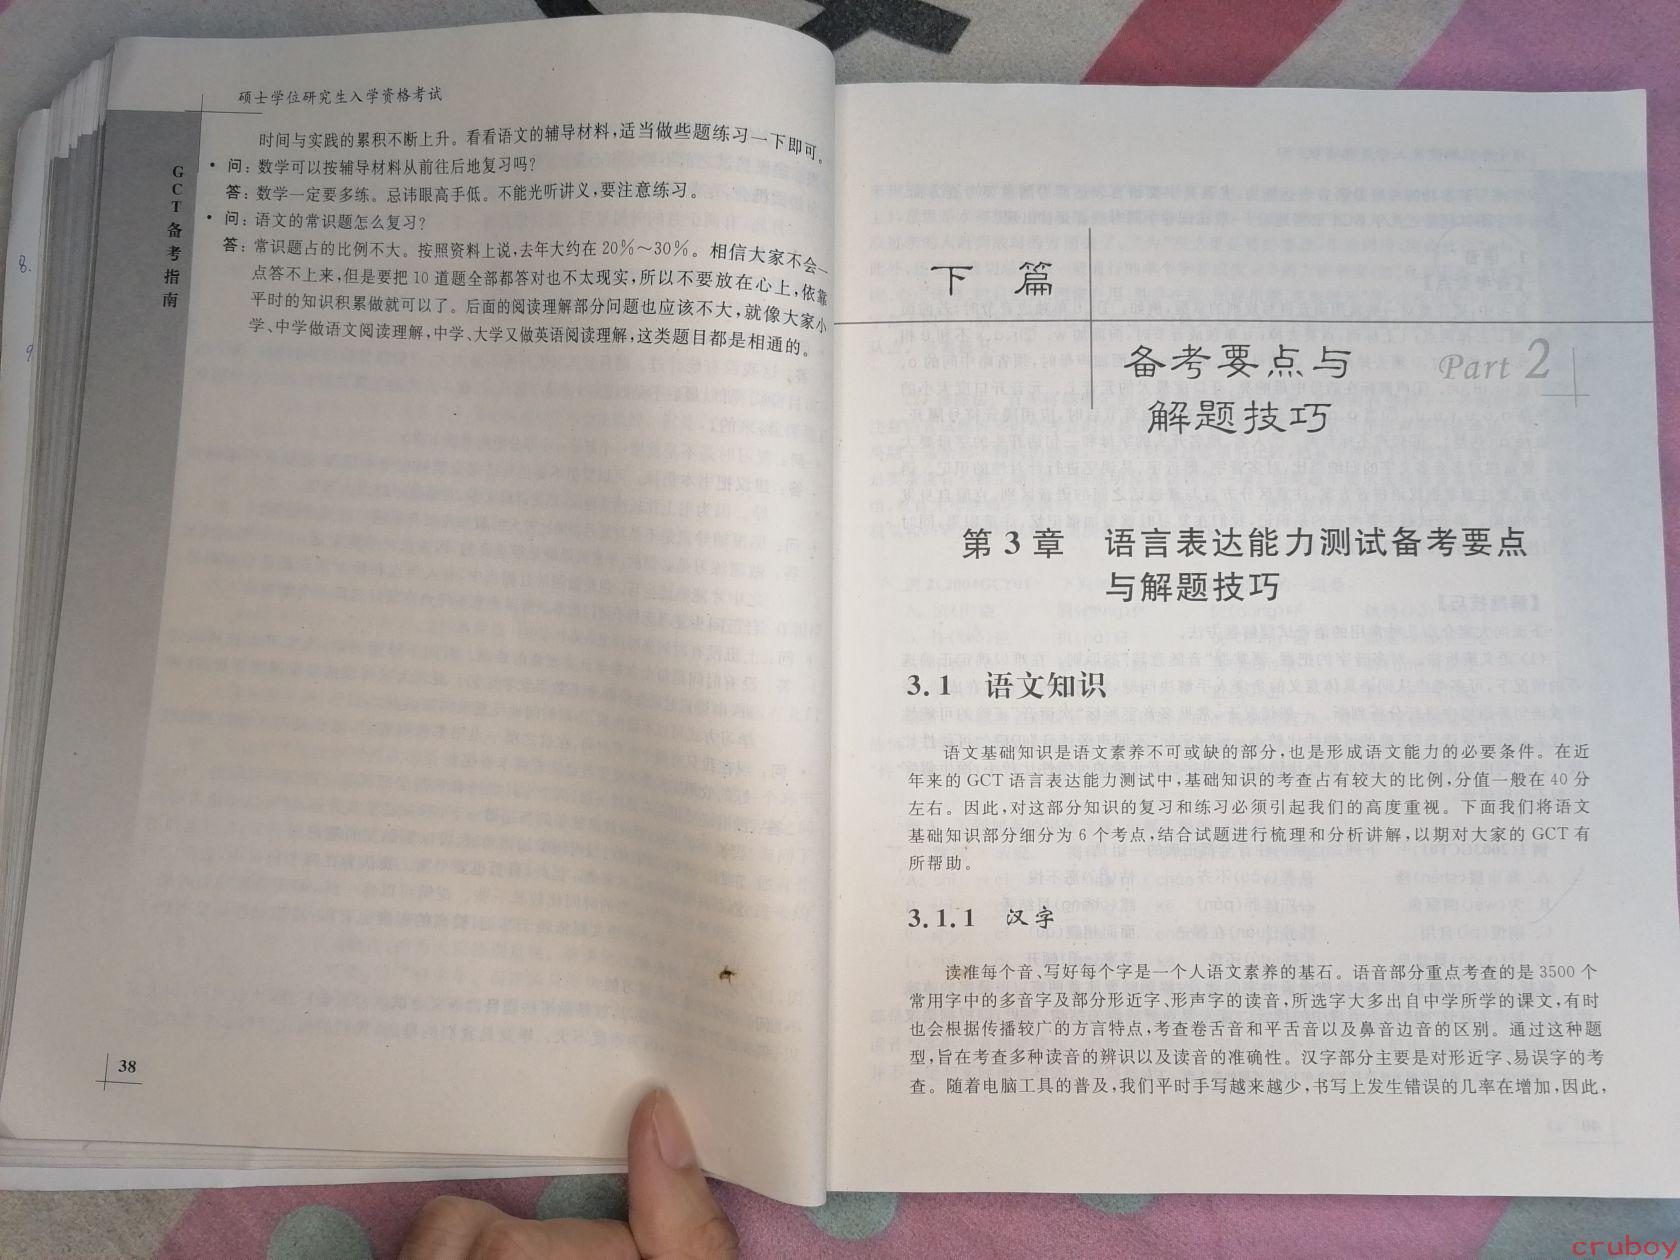 硕士学位研究生入学资格考试
GCT备考指南
时间与实践的累积不断上升。看看语文的辅导材料,适当做些题练习一下即可。
• 问:数学可以按辅导材料从前往后地复习吗?
答:数学一定要多练。忌讳眼高手低。不能光听讲义,要注意练习。
• 问:语文的常识题怎么复习?
答:常识题占的比例不大。按照资料上说,去年大约在20%～30%。相信大家不会一
点答不上来,但是要把10道题全部都答对也不太现实,所以不要放在心上,依靠
平时的知识积累做就可以了。后面的阅读理解部分问题也应该不大,就像大家小
学、中学做语文阅读理解,中学、大学又做英语阅读理解,这类题目都是相通的。
8.
9
38
下 篇
备考要点与
解题技巧
Part 2
第3章 语言表达能力测试备考要点
与解题技巧
3.1 语文知识
语文基础知识是语文素养不可或缺的部分,也是形成语文能力的必要条件。在近
年来的GCT语言表达能力测试中,基础知识的考查占有较大的比例,分值一般在40分
左右。因此,对这部分知识的复习和练习必须引起我们的高度重视。下面我们将语文
基础知识部分细分为6个考点,结合试题进行梳理和分析讲解,以期对大家的GCT有
所帮助。
3.1.1 汉字
读准每个音、写好每个字是一个人语文素养的基石。语音部分重点考查的是3500个
常用字中的多音字及部分形近字、形声字的读音,所选字大多出自中学所学的课文,有时
也会根据传播较广的方言特点,考查卷舌音和平舌音以及鼻音边音的区别。通过这种题
型,旨在考查多种读音的辨识以及读音的准确性。汉字部分主要是对形近字、易误字的考
查。随着电脑工具的普及,我们平时手写越来越少,书写上发生错误的几率在增加,因此,
cruboy